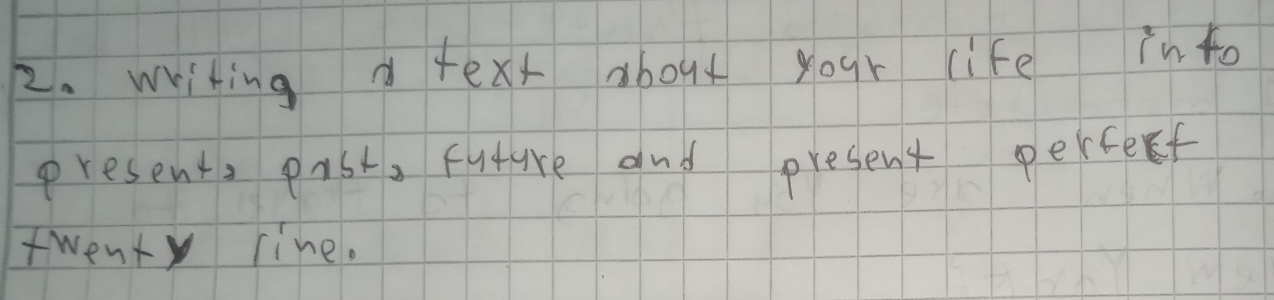 2. writing a text about your life into
present, past, future and present perfect
twenty line.